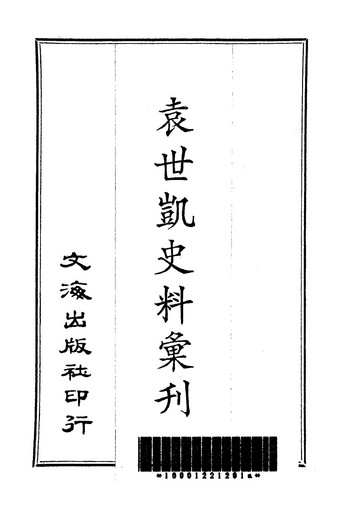 袁世凱史料彙刊
文海出版社印行
*10001221201a*